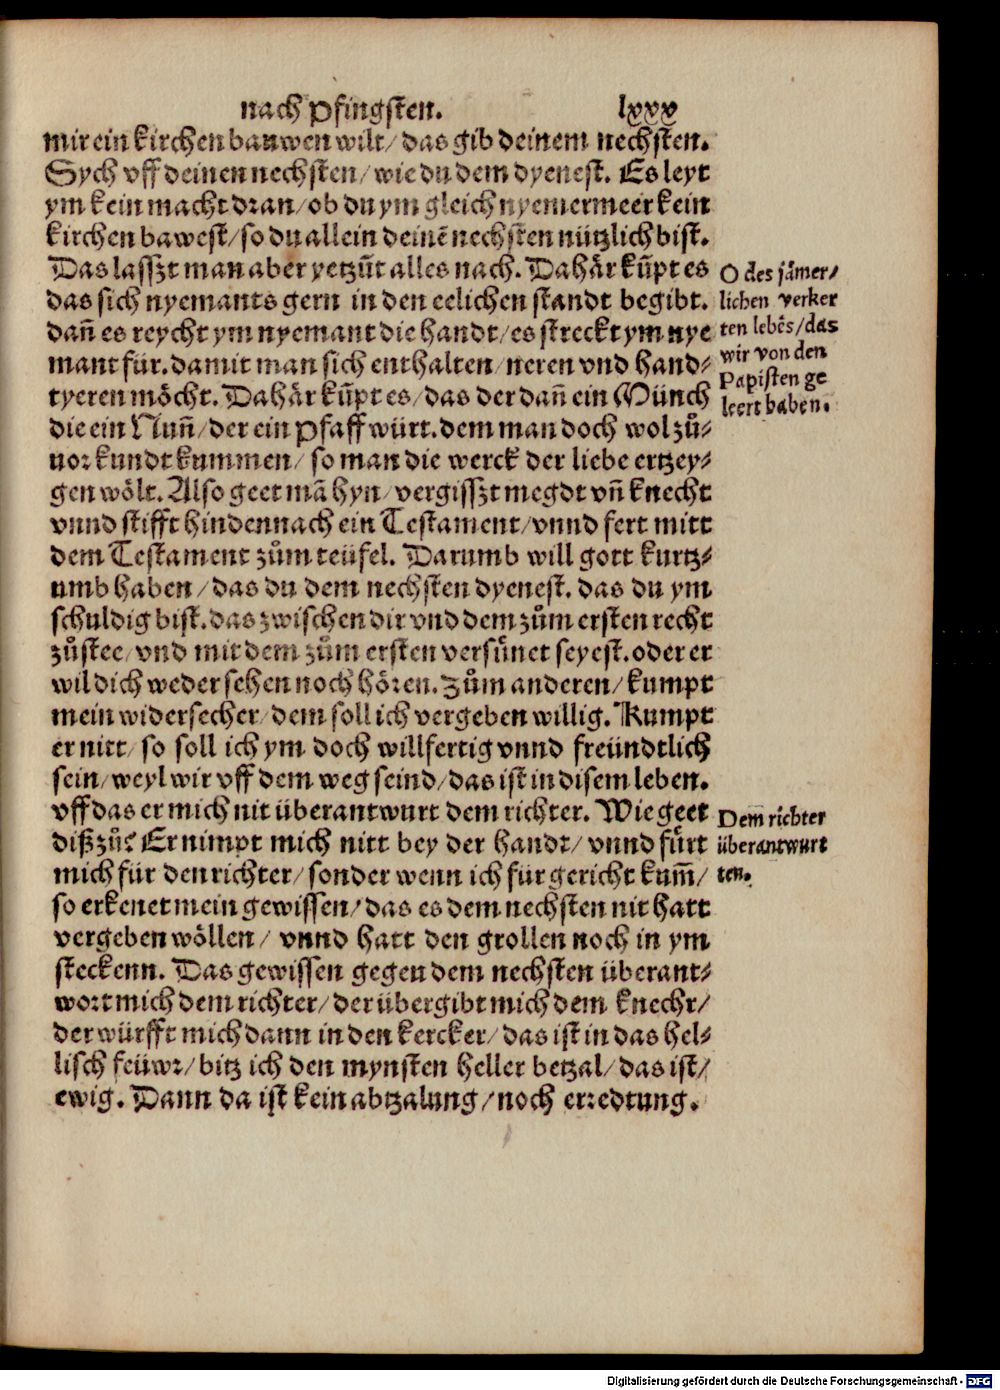 nach Pfingsten. lxxx
mir ein kirchen bauwen wilt/ das gib deinem nechsten.
Sych vff deinen nechsten/ wie du dem dyenest. Es leyt
ym kein macht dran/ ob du ym gleich nyemermeer kein
kirchen bawest/ so du allein deinē nechsten nützlich bist.
Das lasszt man aber yetzūt alles nach. Dahär kūpt es
das sich nyemants gern in den eelichen standt begibt.
dañ es reycht ym nyemant die handt/ es streckt ym nye
mant für. damit man sich enthalten/ neren vnd hand⸗
tyeren möcht. Dahär kūpt es/ das der dañ ein Münch
die ein Nuñ/ der ein Pfaff würt. dem man doch wol zů⸗
uor kundt kummen/ so man die werck der liebe ertzey⸗
gen wölt. Also geet mā hyn/ vergisszt megdt vñ knecht
vnnd stifft hindennach ein Testament/ vnnd fert mitt
dem Testament zům teüfel. Darumb will gott kurtz⸗
umb haben/ das du dem nechsten dyenest. das du ym
schuldig bist. das zwischen dir vnd dem zům ersten recht
zůstee/ vnd mit dem zům ersten versünet seyest. oder er
wil dich weder sehen noch hören. Zům anderen/ kumpt
mein widersecher/ dem soll ich vergeben willig. Kumpt
er nitt/ so soll ich ym doch willfertig vnnd freündtlich
sein/ weyl wir vff dem weg seind/ das ist in disem leben.
vff das er mich nit überantwurt dem richter. Wie geet
diß zů? Er nimpt mich nitt bey der handt/ vnnd fürt
mich für den richter/ sonder wenn ich für gericht kum̄/
so erkenet mein gewissen/ das es dem nechsten nit hatt
vergeben wöllen/ vnnd hatt den grollen noch in ym
steckenn. Das gewissen gegen dem nechsten überant⸗
wort mich dem richter/ der übergibt mich dem knecht/
der würfft mich dann in den kercker/ das ist in das hel⸗
lisch feüwr/ bitz ich den mynsten heller betzal/ das ist/
ewig. Dann da ist kein abtzalung/ noch erredtung.
O des jämer/
lichen verker
ten lebēs/ das
wir von den
Papisten ge
leert haben.
Dem richter
überantwurt
ten.
Digitalisierung gefördert durch die Deutsche Forschungsgemeinschaft - DFG